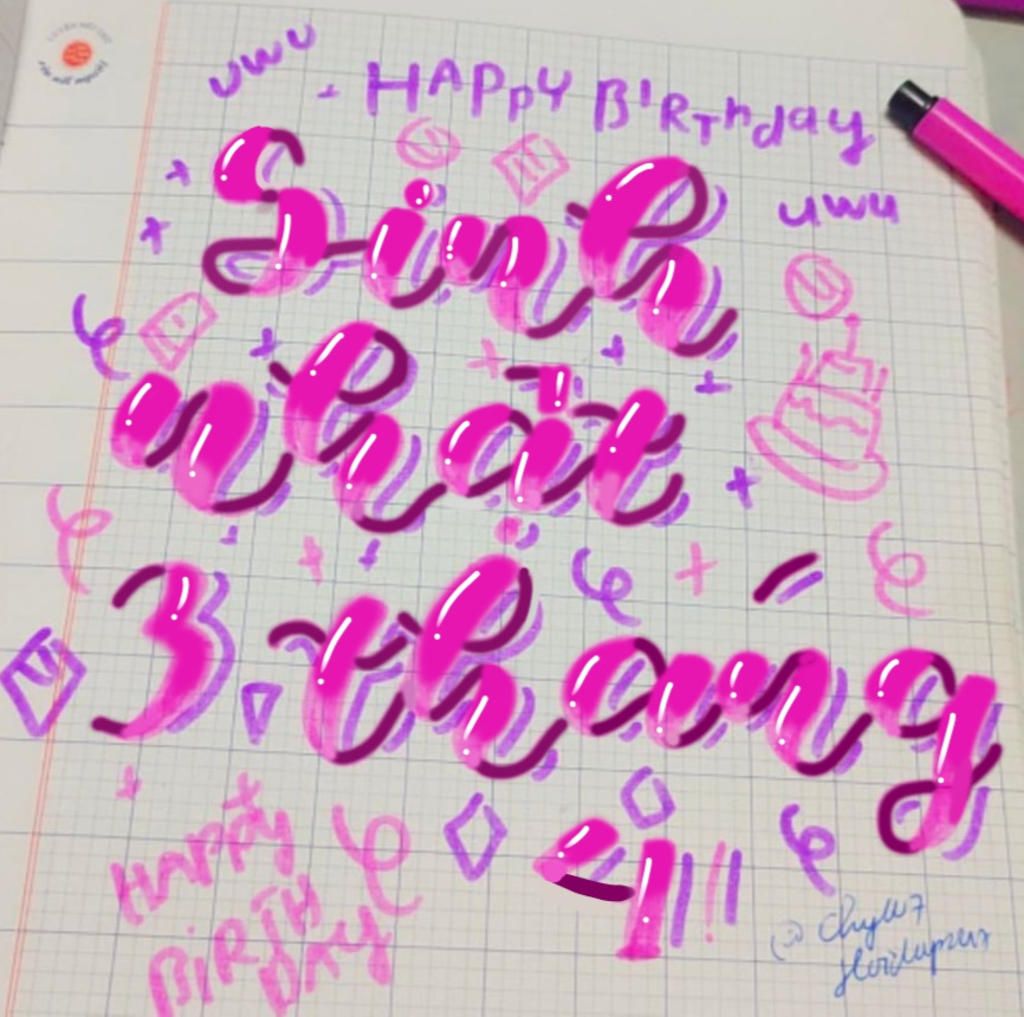 uwu
HAPpY BiRThday
uwu
Sinh
nhật
3 tháng
4!!!
HAPPY
BiRTH
DAY